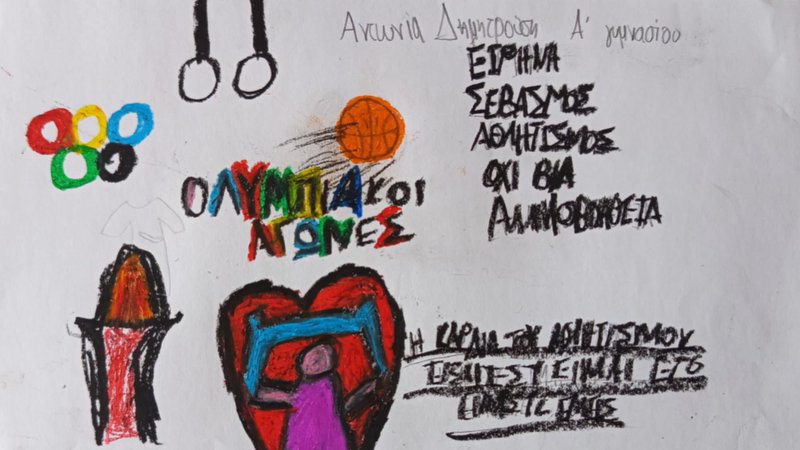 Αντωνία Δημητρούση Α' γυμνασίου
ΕΙΡΗΝΗ
ΣΕΒΑΣΜΟΣ
ΑΘΛΗΤΙΣΜΟΣ
ΟΧΙ ΒΙΑ
ΑΛΛΗΛΟΒΟΗΘΕΙΑ
ΟΛΥΜΠΙΑΚΟΙ
ΑΓΩΝΕΣ
Η ΚΑΡΔΙΑ ΤΟΥ ΑΘΛΗΤΙΣΜΟΥ
ΕΙΣΑΙ ΕΣΥ ΕΙΜΑΙ ΕΓΩ
ΕΙΜΑΣΤΕ ΕΜΕΙΣ